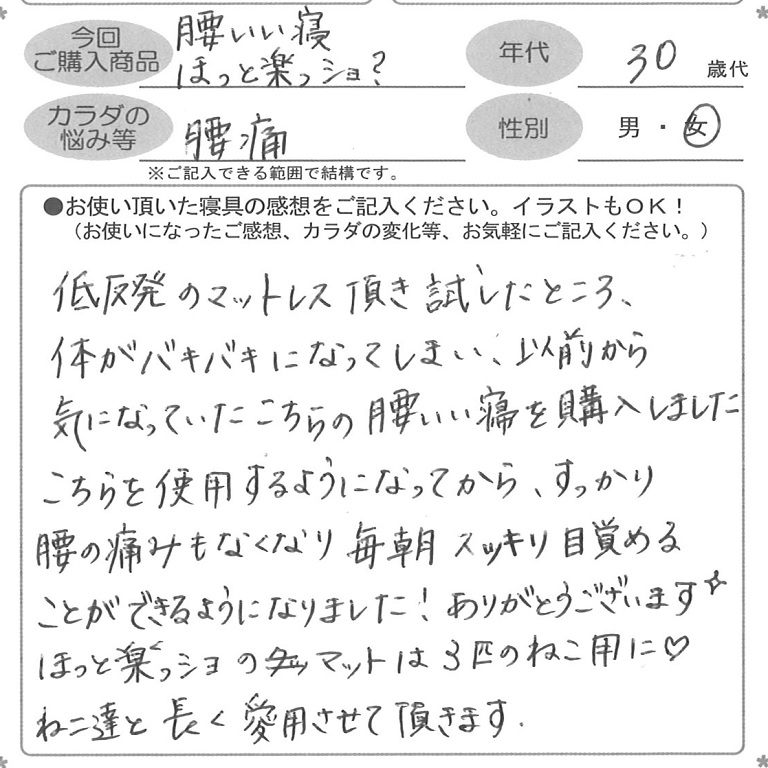 今回
ご購入商品
腰いい寝
ほっと楽っショ?
年代
30 歳代
カラダの
悩み等
腰痛
性別
男・女
※ご記入できる範囲で結構です。
●お使い頂いた寝具の感想をご記入ください。イラストもOK!
(お使いになったご感想、カラダの変化等、お気軽にご記入ください。)
低反発のマットレス頂き試したところ、
体がバキバキになってしまい、以前から
気になっていたこちらの腰いい寝を購入しました
こちらを使用するようになってから、すっかり
腰の痛みもなくなり毎朝スッキリ目覚める
ことができるようになりました!ありがとうございます☆
ほっと楽っショのマットは3匹のねこ用に♡
ねこ達と長く愛用させて頂きます.